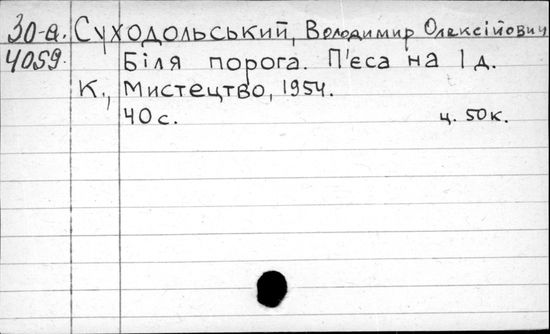 30-а. Суходольський, Володимир Олексійович
4059. Біля порога. П'єса на 1 д.
К., Мистецтво, 1954.
40 с. ц. 50 к.